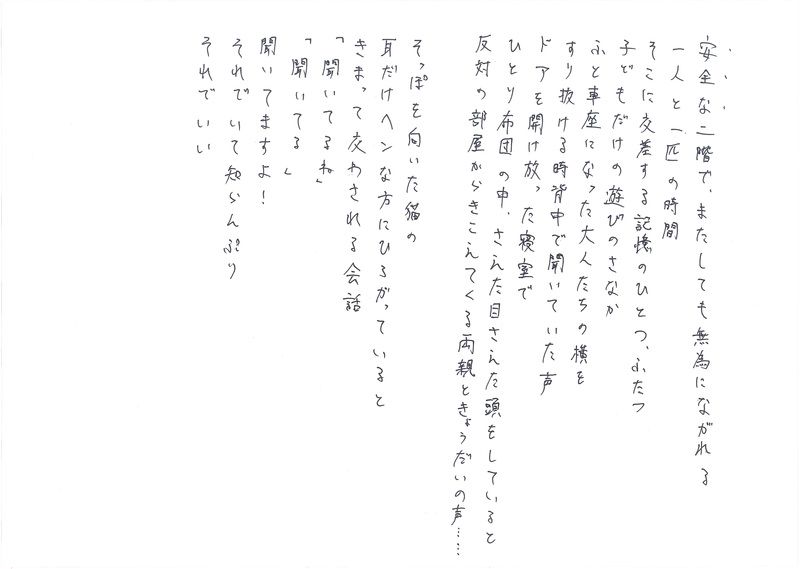 安全な二階で、またしても無為にながれる
一人と一匹の時間
そこに交差する記憶のひとつ、ふたつ
子どもだけの遊びのさなか
ふと車座になった大人たちの横を
すり抜ける時背中で聞いていた声
ドアを開け放った寝室で
ひとり布団の中、さえた目さえた頭をしていると
反対の部屋からきこえてくる両親ときょうだいの声……
そっぽを向いた猫の
耳だけヘンな方にひろがっていると
きまって交わされる会話
「聞いてるね」
「聞いてる」
聞いてますよ！
それでいて知らんぷり
それでいい